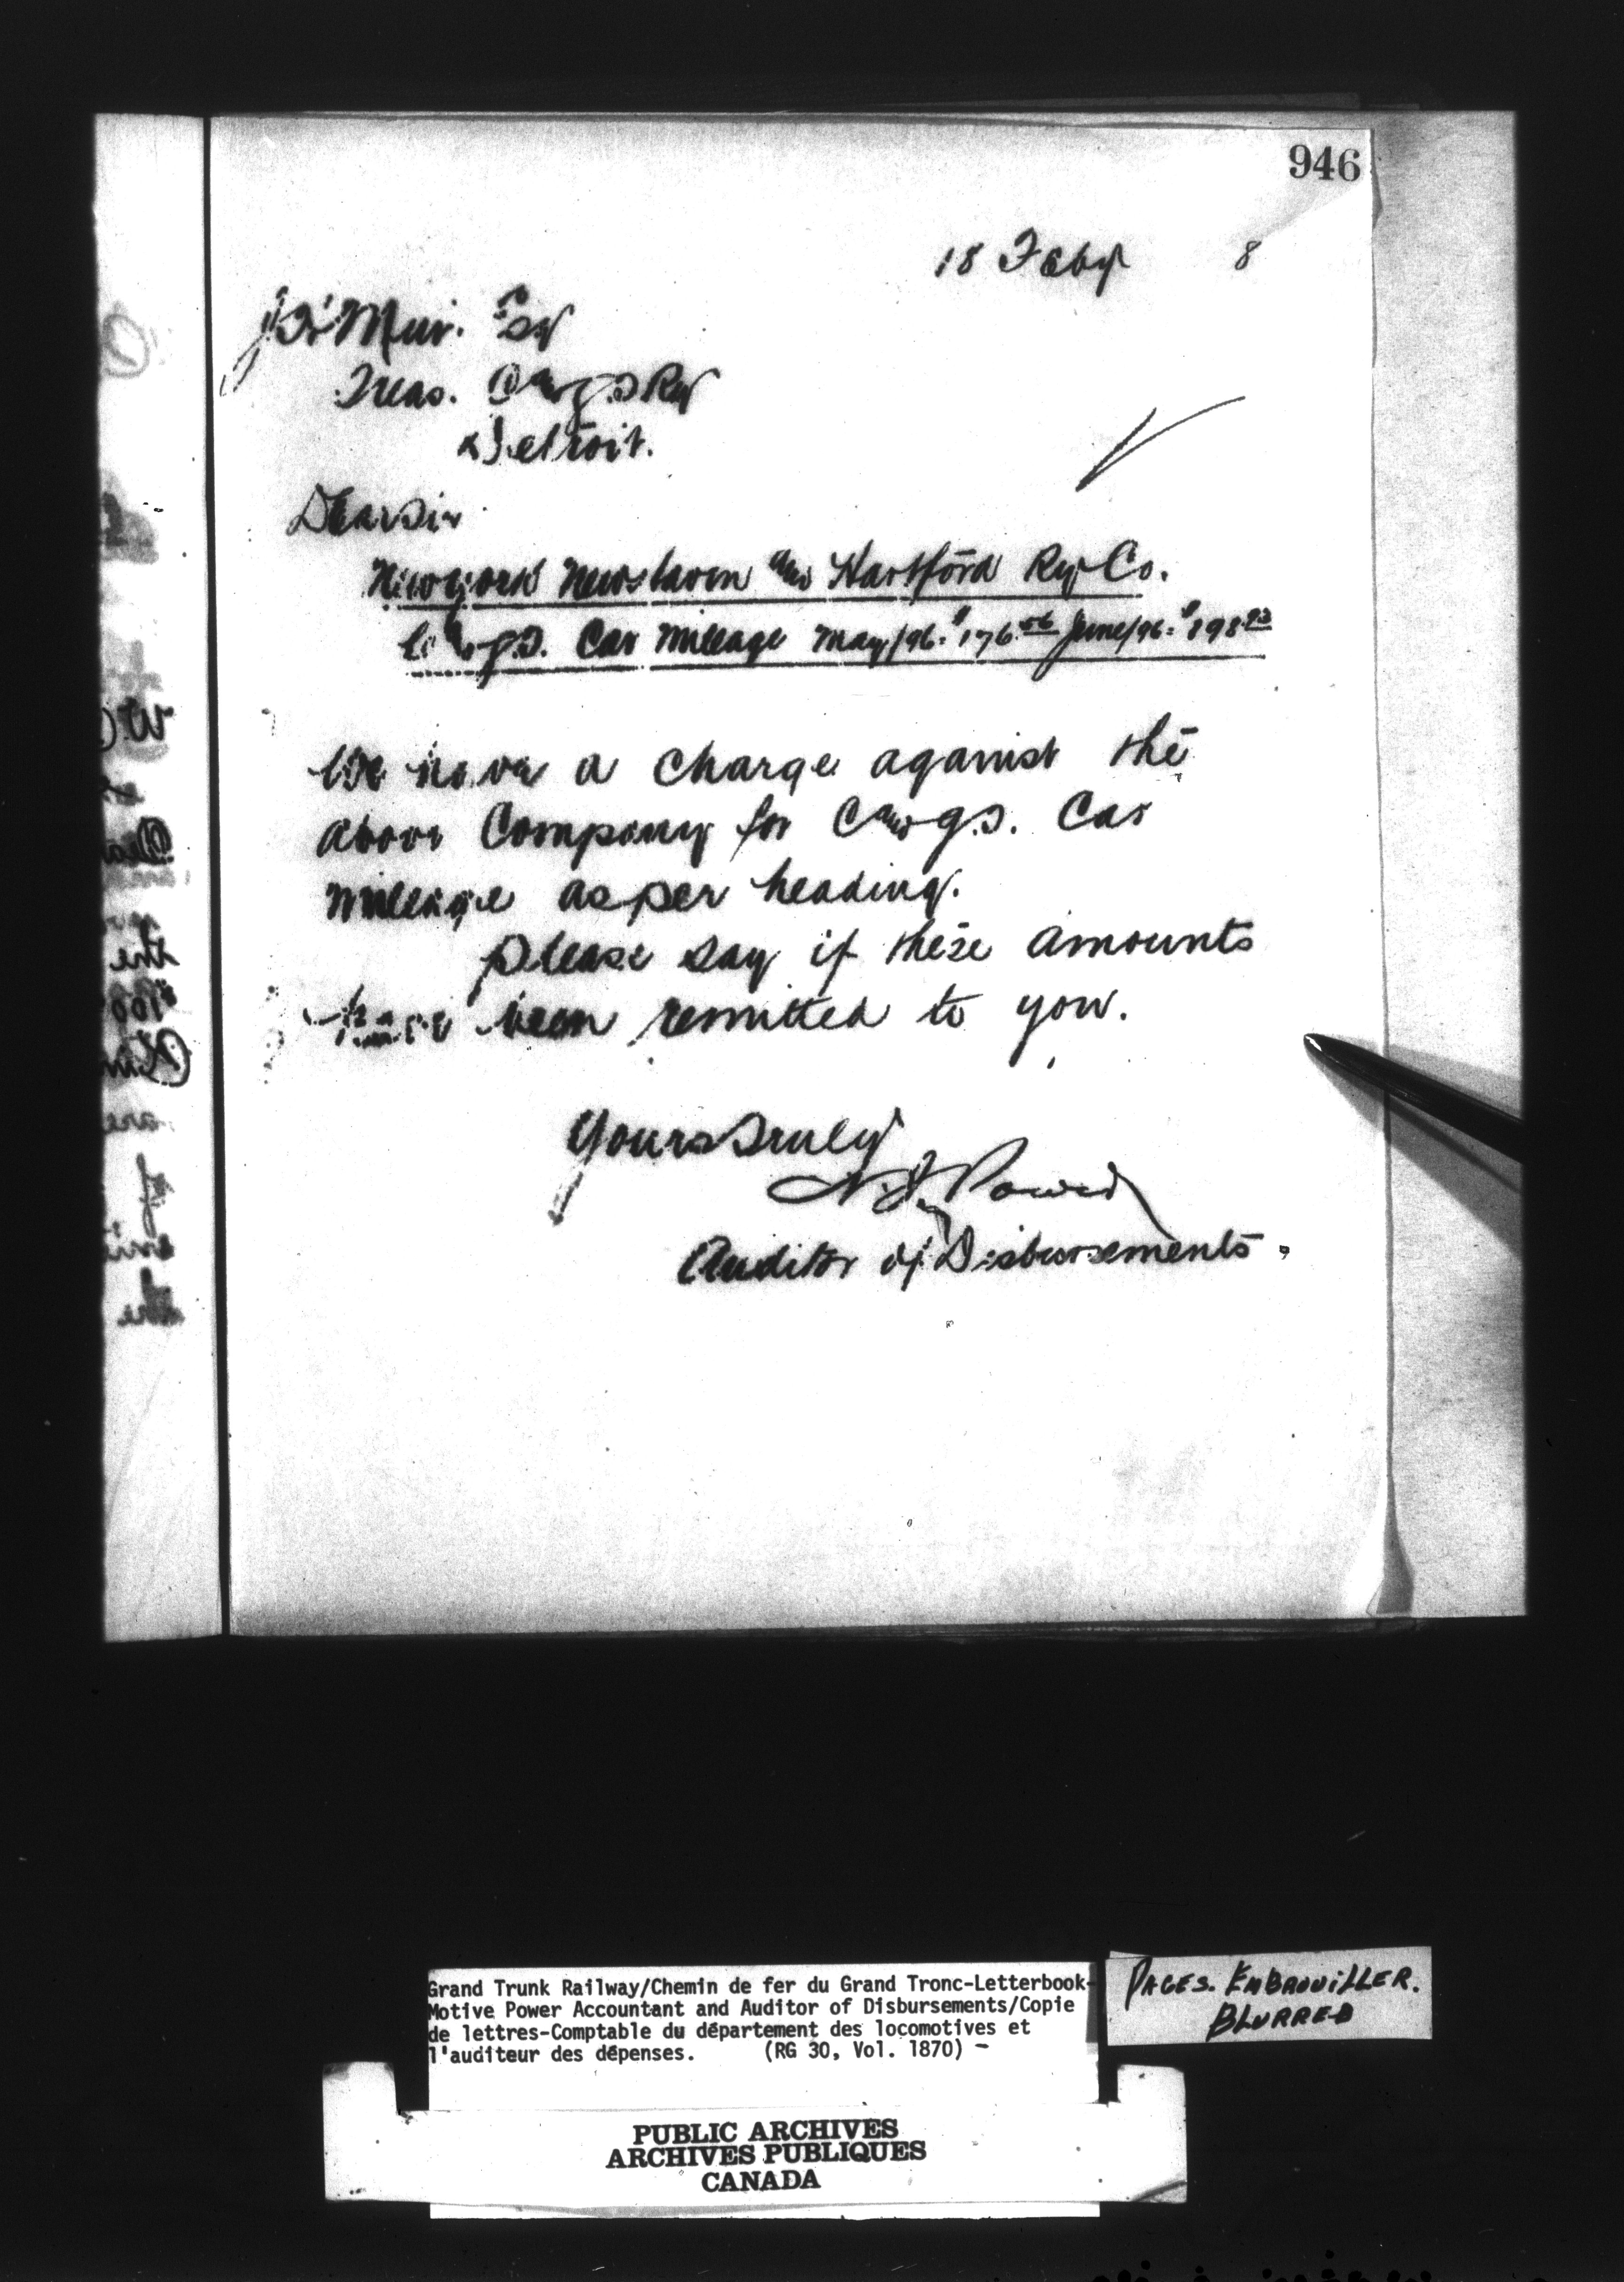 946
18 Feby 8
Jas Muir. Esq
Treas. C and G.T Ry
Detroit.
Dear Sir
New york New Haven and Hartford Ry Co.
C and G.T. Car Mileage May/96 = $176.56 June/96 = $198.
We have a charge against the
above Company for C and G.T. Car
mileage as per heading.
Please say if these amounts
have been remitted to you.
Yours Truly
Power
Auditor of Disbursements.
the
are
of
the
Grand Trunk Railway/Chemin de fer du Grand Tronc-Letterbook-
Motive Power Accountant and Auditor of Disbursements/Copie
de lettres-Comptable du département des locomotives et
l'auditeur des dépenses. (RG 30, Vol. 1870) -
PAGES. EMBROUILLER.
BLURRED
PUBLIC ARCHIVES
ARCHIVES PUBLIQUES
CANADA